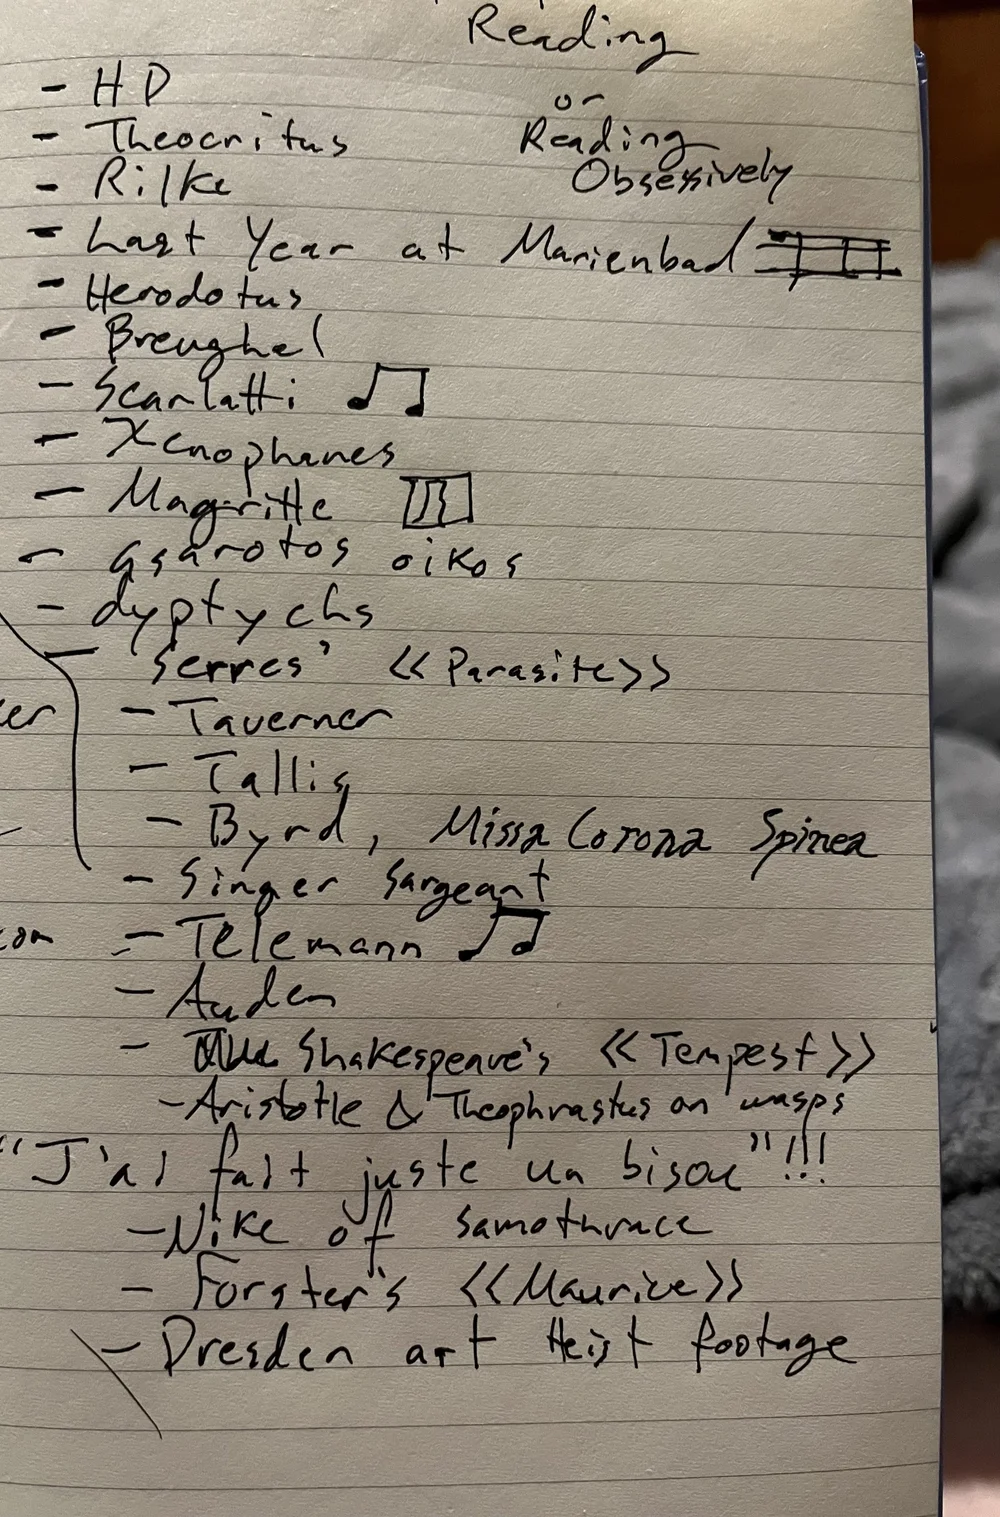 Reading
- HD
or
- Theocritus
Reading
Obsessively
- Rilke
- Last Year at Marienbad
- Herodotus
- Breughel
- Scarlatti
- Xenophanes
- Magritte
- asarotos oikos
- dyptychs
- Serres' << Parasite >>
er
- Taverner
- Tallis
- Byrd, Missa Corona Spinea
- Singer Sargeant
com
- Telemann
- Auden
- Shakespeare's << Tempest >>
- Aristotle & Theophrastus on wasps
"J'ai fait juste un bisou"!!!
- Nike of Samothrace
- Forster's <<Maurice>>
- Dresden art Heist footage